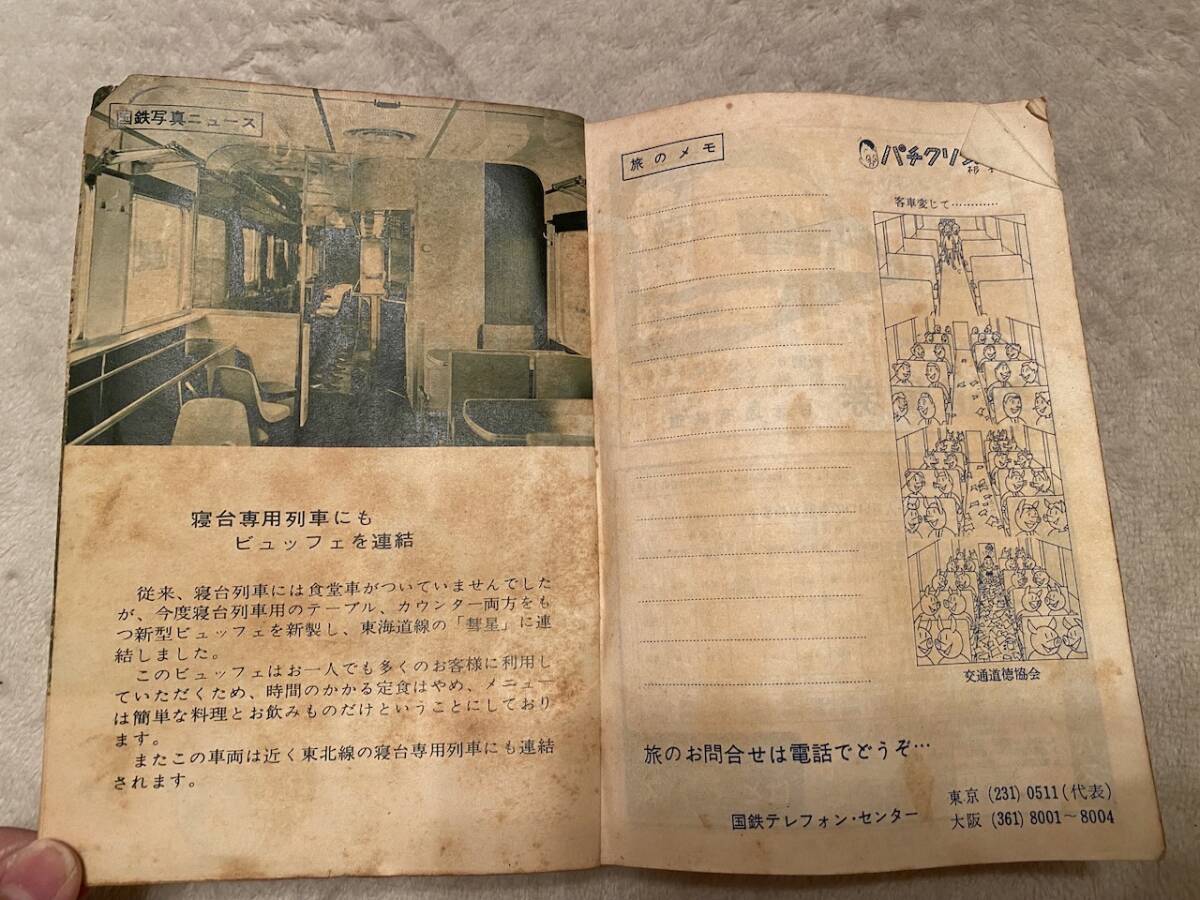 国鉄写真ニュース
寝台専用列車にも
ビュッフェを連結
従来、寝台列車には食堂車がついていませんでした
が、今度寝台列車用のテーブル、カウンター両方をも
つ新型ビュッフェを新製し、東海道線の「彗星」に連
結しました。
このビュッフェはお一人でも多くのお客様に利用し
ていただくため、時間のかかる定食はやめ、メニュー
は簡単な料理とお飲みものだけということにしており
ます。
またこの車両は近く東北線の寝台専用列車にも連結
されます。
旅のメモ
パチクリ
客車変じて…………
交通道徳協会
旅のお問合せは電話でどうぞ…
国鉄テレフォン・センター
東京 (231) 0511 (代表)
大阪 (361) 8001〜8004